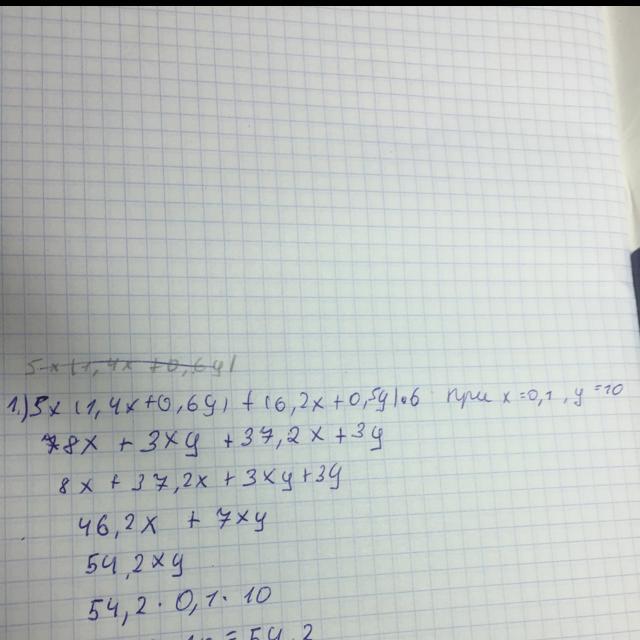 5x(1,4x+0,6y)
1.) 5x (1,4x+0,6y) + (6,2x+0,5y)•6 при x=0,1, y=10
78x + 3xy + 37,2x + 3y
8x + 37,2x + 3xy + 3y
46,2x + 7xy
54,2xy
54,2 · 0,1 · 10
= 54,2